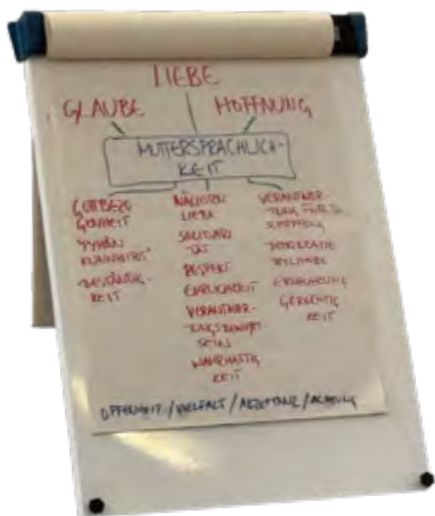 LIEBE
GLAUBE HOFFNUNG
MUTTERSPRACHLICH-
KEIT
GOTTBEZO
GENHEIT
BESTÄNDIG-
KEIT
NÄCHSTEN
LIEBE
SOLIDARI
TÄT
RESPEKT
EHRLICHKEIT
VERANTWOR-
TUNGSBEWUSST
SEIN
WAHRHAFTIG
KEIT
VERANTWOR-
TUNG FÜR D.
SCHÖPFUNG
DEMOKRATIE
TEILHABE
ERNEUERUNG
GERECHTIG
KEIT
OFFENHEIT / VIELFALT / AKZEPTANZ / ACHTUNG